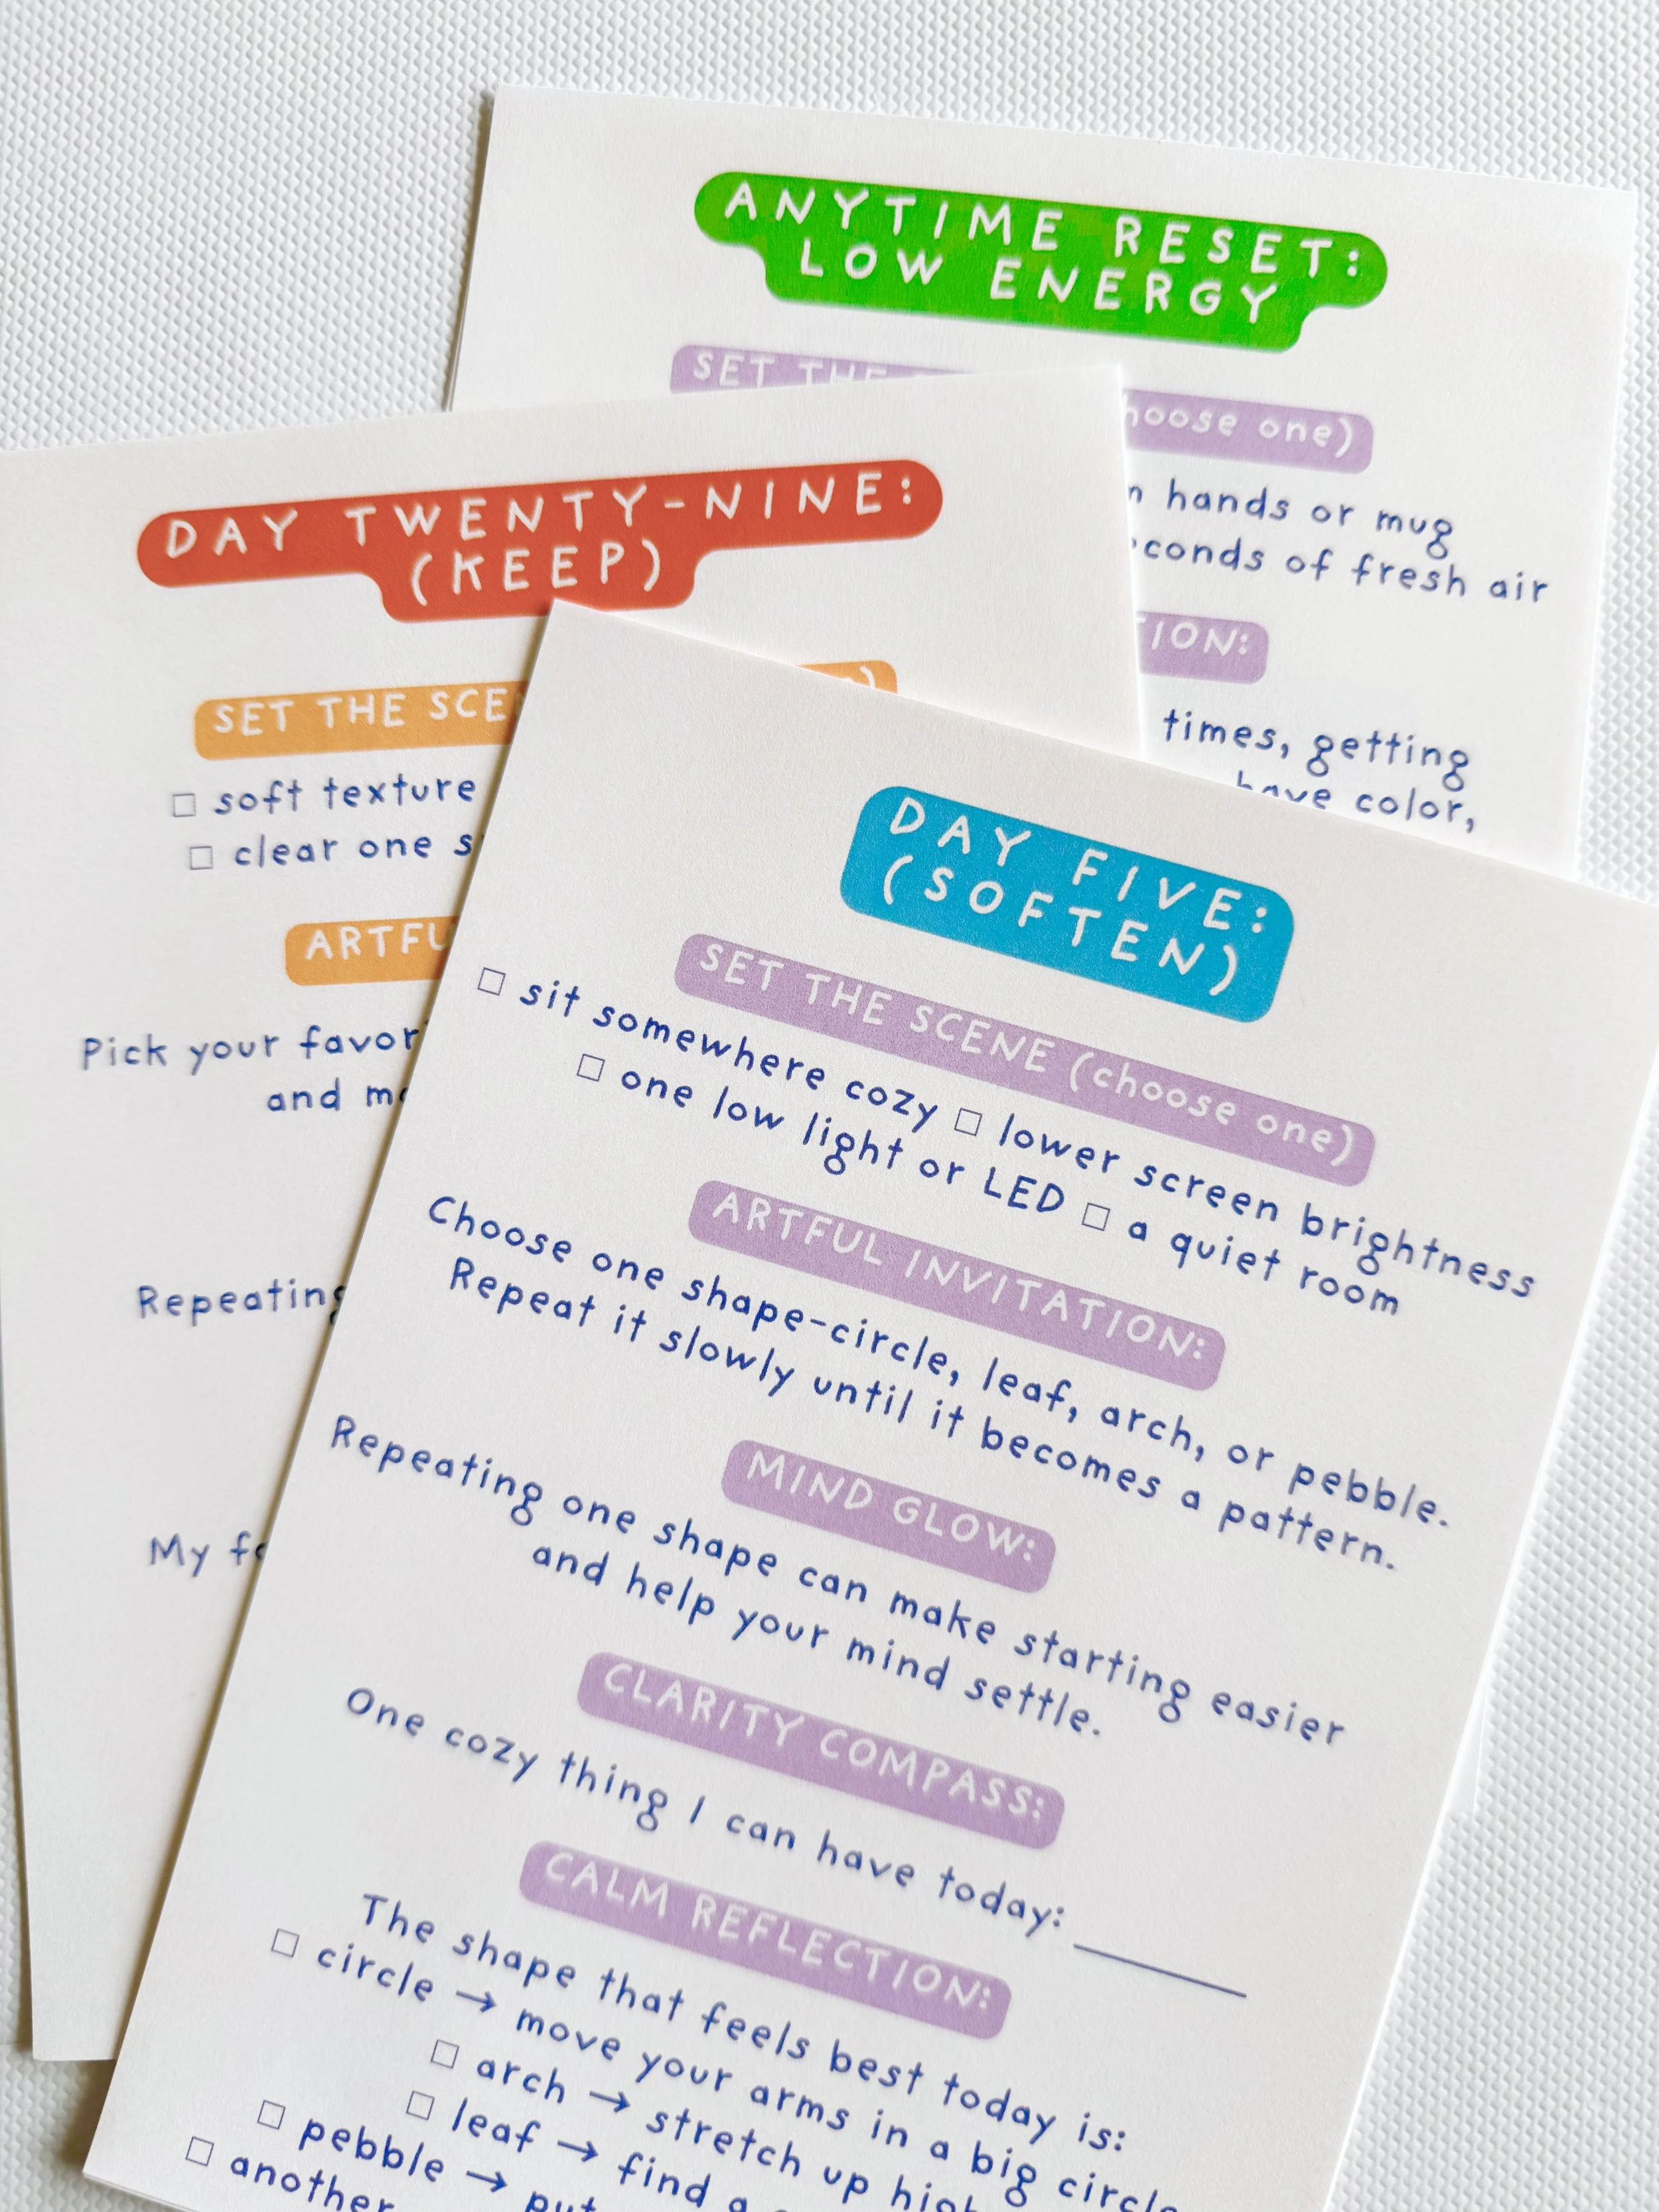 ANYTIME RESET:
LOW ENERGY
SET THE
(choose one)
hands or mug
of fresh air
times, getting
have color,
DAY TWENTY-NINE:
(KEEP)
SET THE
soft texture
clear one
Pick your
and
Repeating
My
DAY FIVE:
(SOFTEN)
SET THE SCENE (choose one)
□ sit somewhere cozy □ lower screen brightness
□ one low light or LED □ a quiet room
ARTFUL INVITATION:
Choose one shape-circle, leaf, arch, or pebble.
Repeat it slowly until it becomes a pattern.
MIND GLOW:
Repeating one shape can make starting easier
and help your mind settle.
CLARITY COMPASS:
One cozy thing I can have today: ______
CALM REFLECTION:
The shape that feels best today is:
□ circle → move your arms in a big circle
□ arch → stretch up high
□ leaf → find a
□ pebble → put
□ another